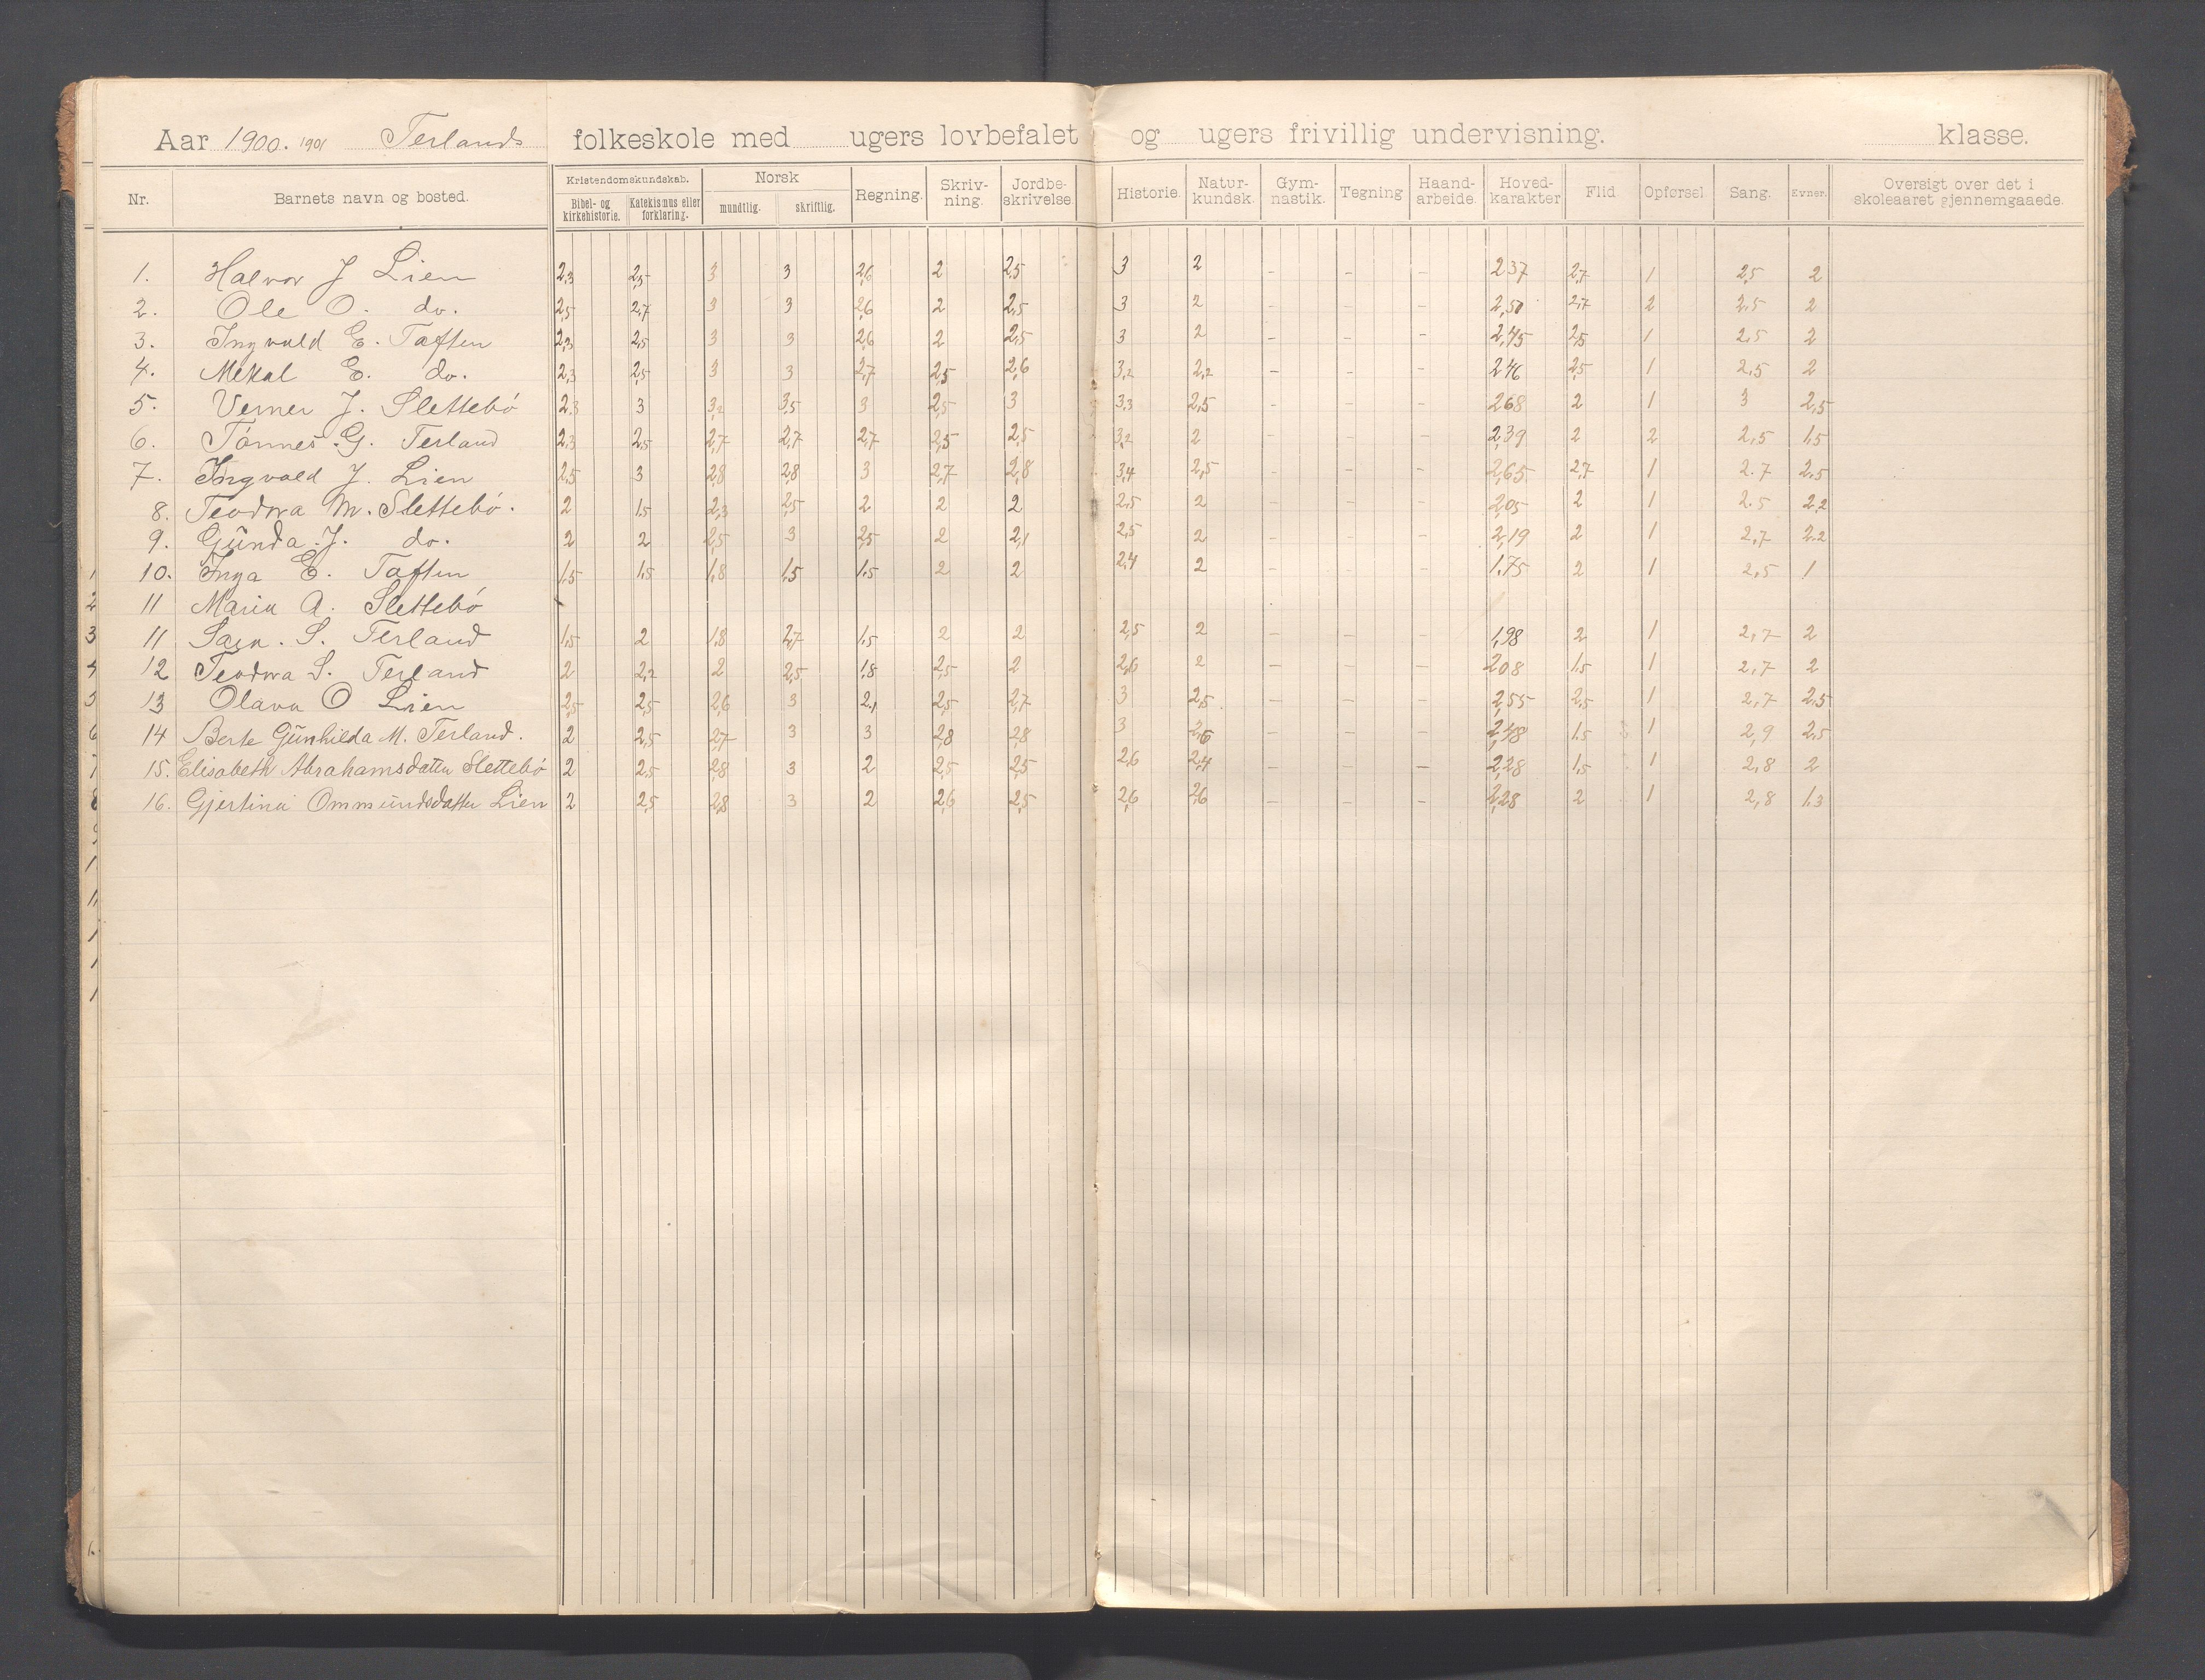 Aar 1900. 1901 Terlands folkeskole med ugers lovbefalet og ugers frivillig undervisning. klasse.
Nr. Barnets navn og bosted. Kristendomskundskab. Bibel- og kirkehistorie. Katekismus eller forklaring. Norsk mundtlig. skriftlig. Regning. Skriv-ning. Jordbe-skrivelse. Historie. Natur-kundsk. Gym-nastik. Tegning Haand-arbeide. Hoved-karakter Flid Opførsel Sang. Evner. Oversigt over det i skoleaaret gjennemgaaede.
1. Halvor J Lien 2,3 2,5 3 3 2,6 2 2,5 3 2 – – – 2 37 2,7 1 2,5 2
2. Ole O. do. 2,5 2,7 3 3 2,6 2 2,5 3 2 – – – 2,50 2,7 2 2,5 2
3. Ingvald E. Taften 2,3 2,5 3 3 2,6 2 2,5 3 2 – – – 2,45 2,5 1 2,5 2
4. Mekal E. do. 2,3 2,5 3 3 2,7 2,5 2,6 3,2 2,2 – – – 2 46 2,5 1 2,5 2
5. Verner J. Slettebö 2,3 3 3,2 3,5 3 2,5 3 3,3 2,5 – – – 2 68 2 1 3 2,5
6. Tönnes G. Terland 2,3 2,5 2,7 2,7 2,7 2,5 2,5 3,2 2 – – – 2,39 2 2 2,5 1,5
7. Ingvald J. Lien 2,5 3 2,8 2,8 3 2,7 2,8 3,4 2,5 – – – 2,65 2,7 1 2.7 2.5
8. Teodora M. Slettebö. 2 1,5 2,3 2,5 2 2 2 2,5 2 – – – 2,05 2 1 2.5 2,2
9. Gunda J. do. 2 2 2,5 3 2,5 2 2,1 2,5 2 – – – 2,19 2 1 2,7 2.2
10. Inga E. Taften 1,5 1,5 1,8 1,5 1,5 2 2 2,4 2 – – – 1.75 2 1 2,5 1
11 Maria A. Slettebö
11 S. Terland 1,5 2 1,8 2,7 1,5 2 2 2,5 2 – – – 1,98 2 1 2,7 2
12 Teodora S. Terland 2 2,2 2 2,5 1,8 2,5 2 2,6 2 – – – 2 08 1.5 1 2,7 2
13 Olava O Lien 2,5 2,5 2,6 3 2,1 2,5 2,7 3 2,5 – – – 2,55 2,5 1 2,7 2.5
14 Berte Gunhilda M. Terland. 2 2,5 2,7 3 3 2,8 2,8 3 2,6 – – – 2,48 1.5 1 2,9 2,5
15. Elisabeth Abrahamsdatter Slettebö 2 2,5 2,8 3 2 2,5 2,5 2,6 2,4 – – – 2,28 1,5 1 2,8 2
16. Gjertina Ommundsdatter Lien 2 2,5 2,8 3 2 2,6 2,5 2,6 2,6 – – – 2,28 2 1 2,8 1.3